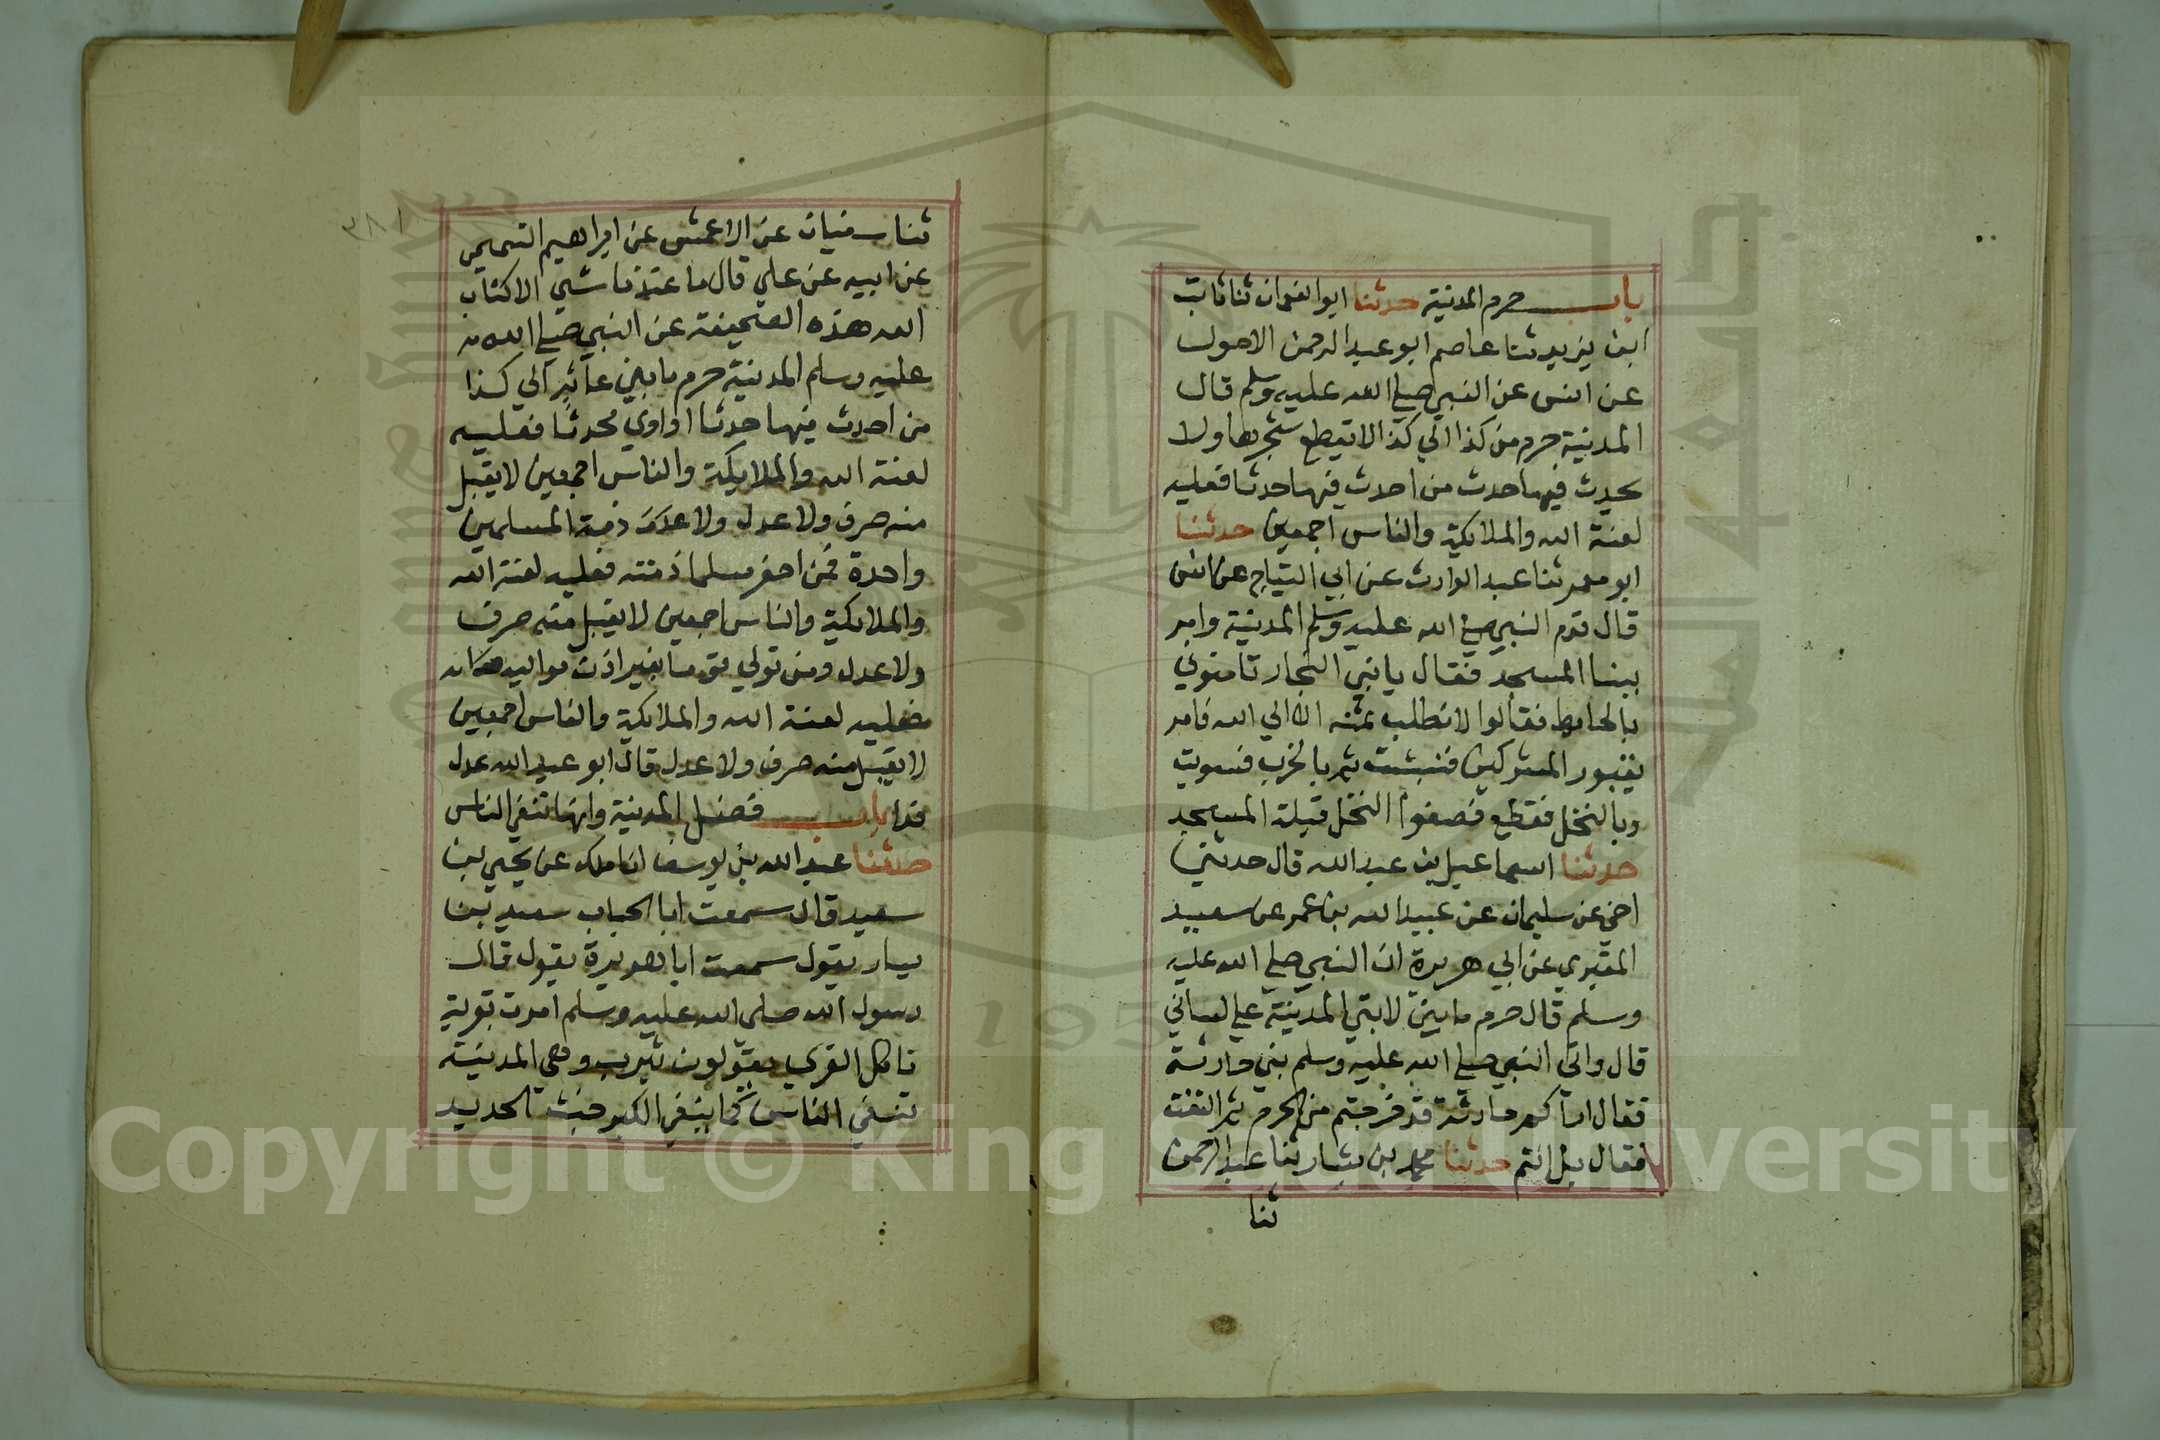 باب حرم المدنية حدثنا ابوا النعمان ثنا ثابت
ابن يزيد ثنا عاصم ابو عبد الرحمن الاحول
عن انس عن النبي صلي الله عليه وسلم قال
المدنية حرم من كذا الي كذا لا تقطع شجرها ولا
يحدث فيها حدث من احدث فيها حدثا فعليه
لعنة الله والملائكة والناس اجمعين حدثنا
ابو معمر ثنا عبد الوارث عن ابي التياح عن انس
قال قدم النبي صلي الله عليه وسلم المدنية وامر
ببنا المسجد فقال يا بني النجار ثامنوني
بالحايط فقالوا لا نطلب ثمنه الا الي الله فامر
بقبور المشركين فنبشت ثم بالخرب فسويت
وبالنخل فقطع فصفوا النخل قبلة المسجد
حدثنا اسماعيل بن عبد الله قال حدثني
اخي عن سليمان عن عبيد الله بن عمر عن سعيد
المقبري عن ابي هريرة ان النبي صلي الله عليه
وسلم قال حرم ما بين لابتي المدنية علي لساني
قال واتي النبي صلي الله عليه وسلم بني حارثة
فقال اراكم حارثة قد خرجتم من الحرم ثم التفت
فقال بل انتم حدثنا محمد بن بشار ثنا عبد الرحمن
ثنا
٣٨١
ثنا سفيان عن الاعمش عن ابراهيم التيمي
عن ابيه عن علي قال ما عندنا شي الا كتاب
الله هذه الصحيفة عن النبي صلي الله
عليه وسلم المدنية حرم ما بين عائر الي كذا
من احدث فيها حدثا او اوي محدثا فعليه
لعنة الله والملايكة والناس اجمعين لا يقبل
منه صرف ولا عدل ذمة المسلمين
واحدة فمن اخفر مسلما ذمته فعليه لعنة الله
والملائكة والناس اجمعين لا يقبل منه صرف
ولا عدل ومن تولي قوما بغير اذن مواليه
فعليه لعنة الله والملائكة والناس اجمعين
لا يقبل منه صرف ولا عدل قال ابو عبد الله عدل
فدا باب فضل المدنية وانها تنفي الناس
حدثنا عبد الله بن يوسف انا ملك عن يحيي بن
سعيد قال سمعت ابا الحباب سعيد بن
يسار يقول سمعت ابا هريرة يقول قال
رسول الله صلى الله عليه وسلم امرت بقرية
تاكل القري يقولون يثرب وهي المدنية
تنفي الناس كما ينفي الكير خبث الحديد
Copyright © King Saud University